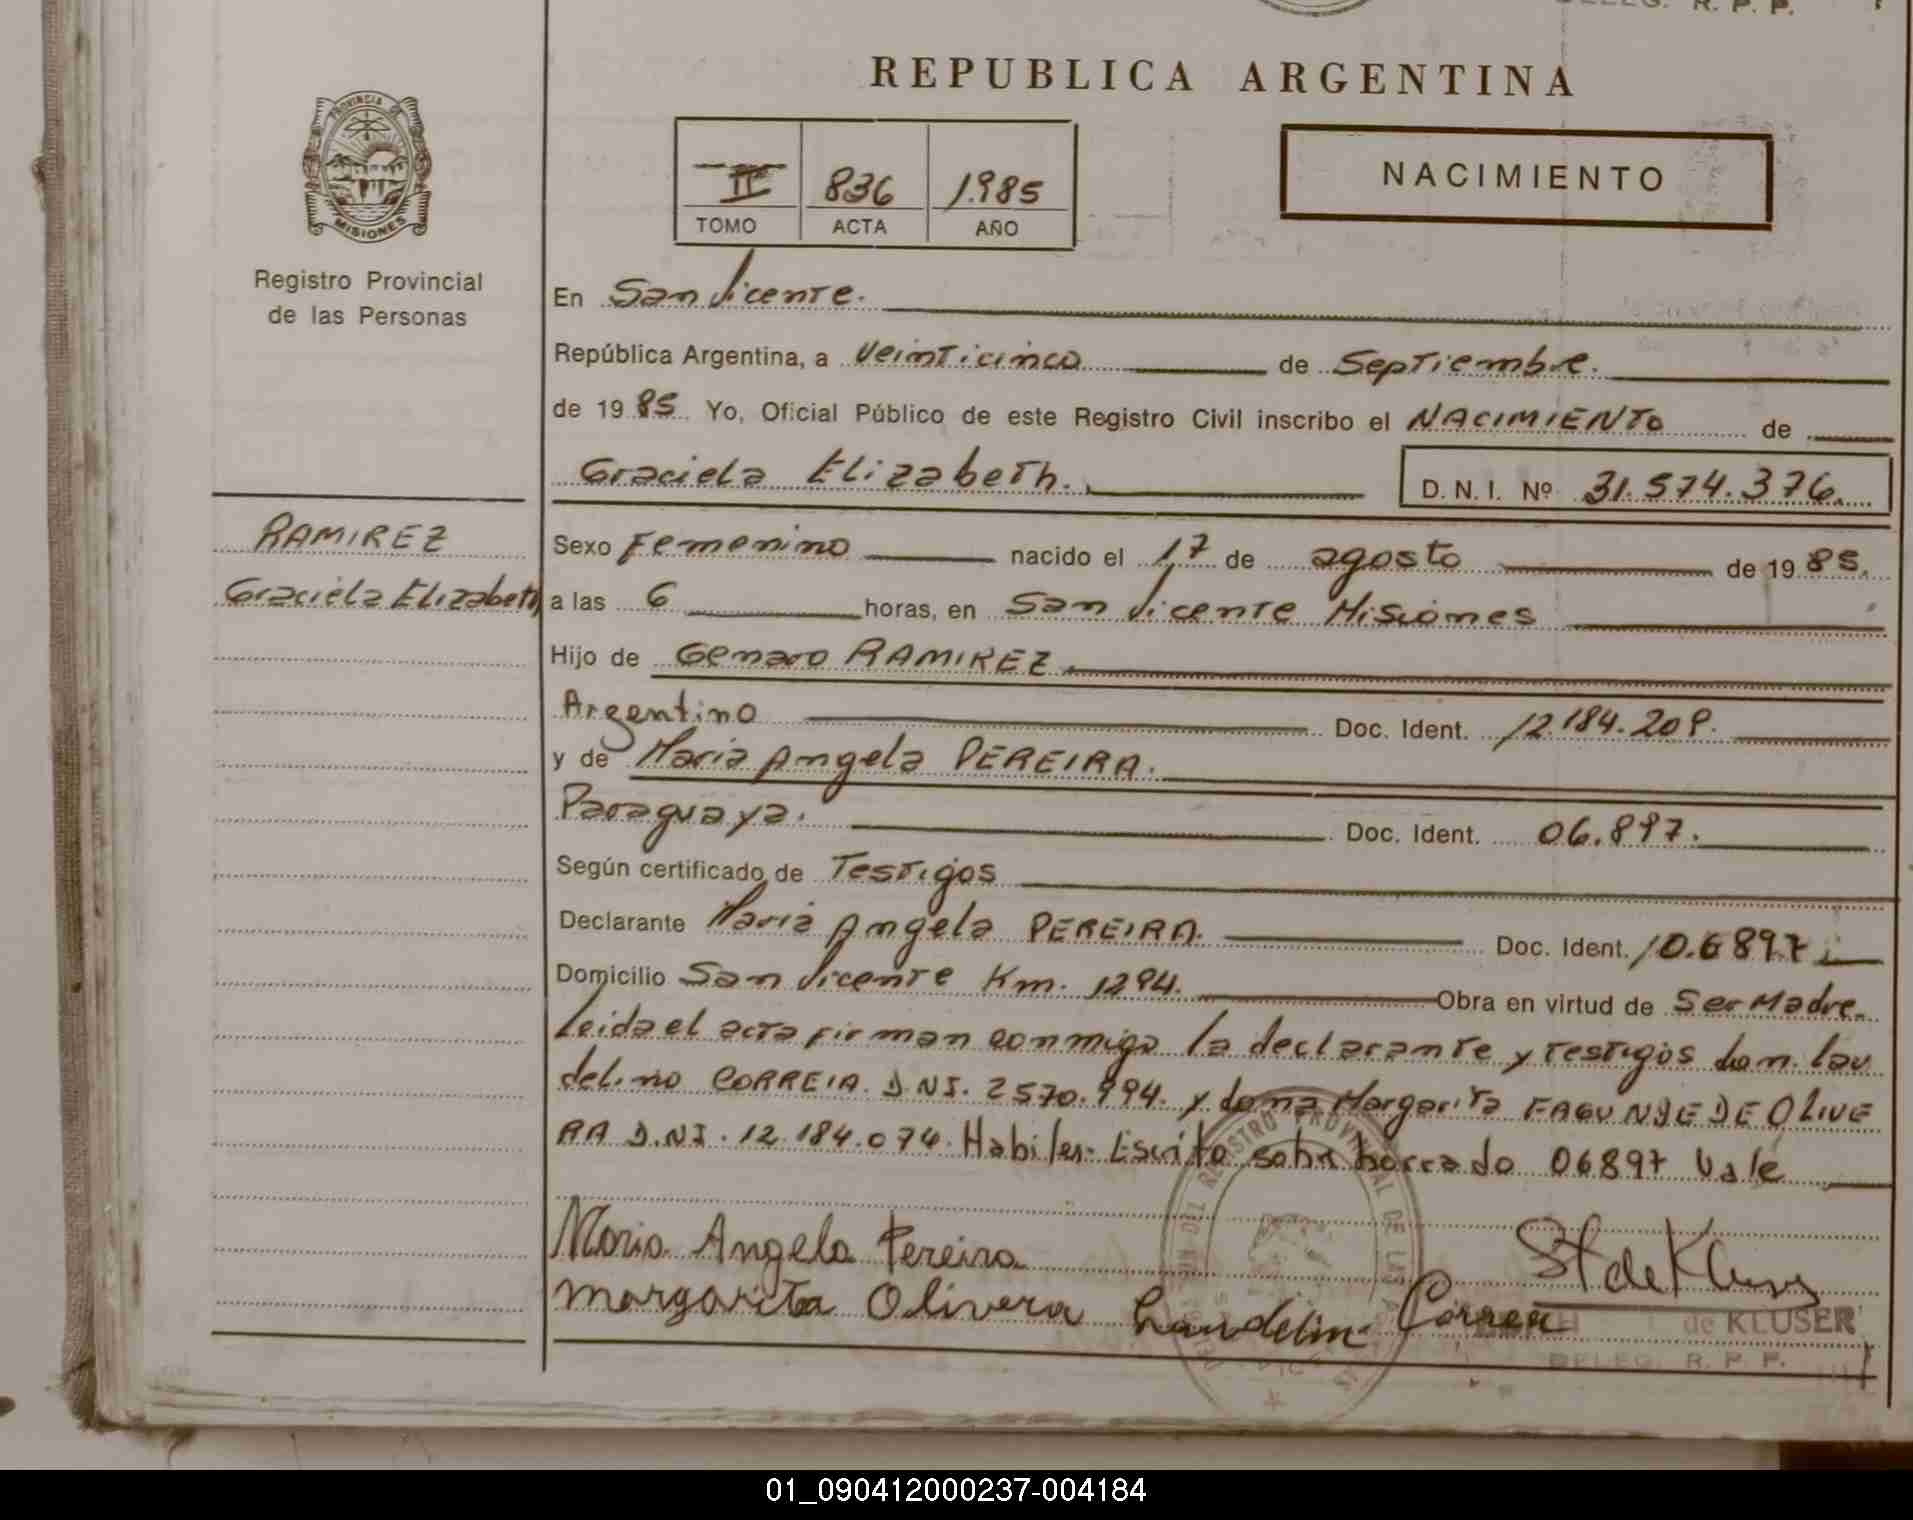 DELEG. R. P. P.
REPUBLICA ARGENTINA
PROVINCIA DE
MISIONES
Registro Provincial
de las Personas
II 836 1.985
TOMO ACTA AÑO
NACIMIENTO
En San Vicente.
República Argentina, a Veinticinco de Septiembre.
de 19 85 Yo, Oficial Público de este Registro Civil inscribo el NACIMIENTO de
Graciela Elizabeth. D. N. I. Nº 31.574.376.
RAMIREZ
Graciela Elizabeth
Sexo Femenino nacido el 17 de agosto de 19 85.
a las 6 horas, en San Vicente Misiones
Hijo de Genaro RAMIREZ
Argentino Doc. Ident. 12.184.209.
y de Maria Angela PEREIRA.
Paraguaya. Doc. Ident. 06.897.
Según certificado de Testigos
Declarante Maria Angela PEREIRA. Doc. Ident. 06897
Domicilio San Vicente Km. 1294. Obra en virtud de Ser Madre.
Leida el acta firman conmigo la declarante y testigos don Lau
delino CORREIA. D.NI. 2570.994. y doña Margarita FAGUNDE DE OLIVE
RA D.NI. 12.184.074. Habiles. Escrito sobre borrado 06897 Vale
Maria Angela Pereira
Margarita Olivera Laudelin Correa
de KLUSER
DELEG. R. P. P.
01_090412000237-004184